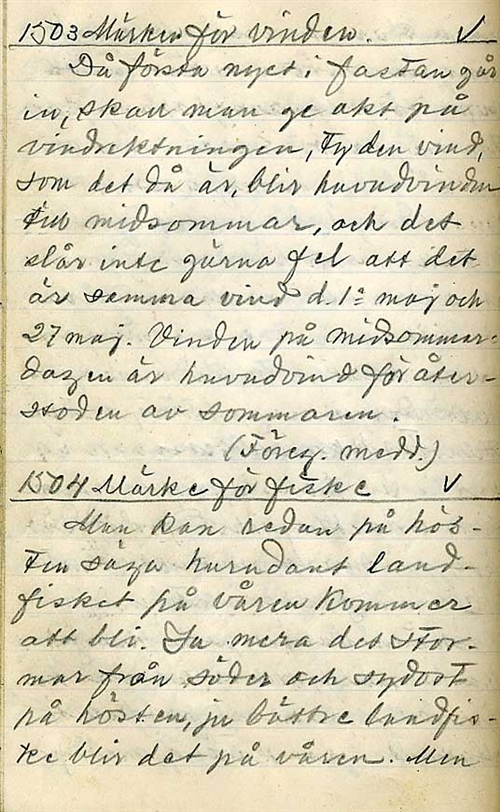 1503 Märken för vinden. V
Då första nyet i fastan går
in, skall man ge akt på
vindrektningen, ty den vind,
som det då är, blir huvudvinden
till midsommar, och det
slår inte gärna fel att det
är samma vind d. 1a maj och
27 maj. Vinden på midsommar-
dagen är huvudvind för åter-
stoden av sommaren.
(Föreg. medd.)
1504 Märke för fiske V
Man kan redan på hös-
ten säga hurudant land-
fisket på våren kommer
att bli. Ju mera det stor-
mar från söder och sydost
på hösten, ju bättre landfis-
ke blir det på våren. Men